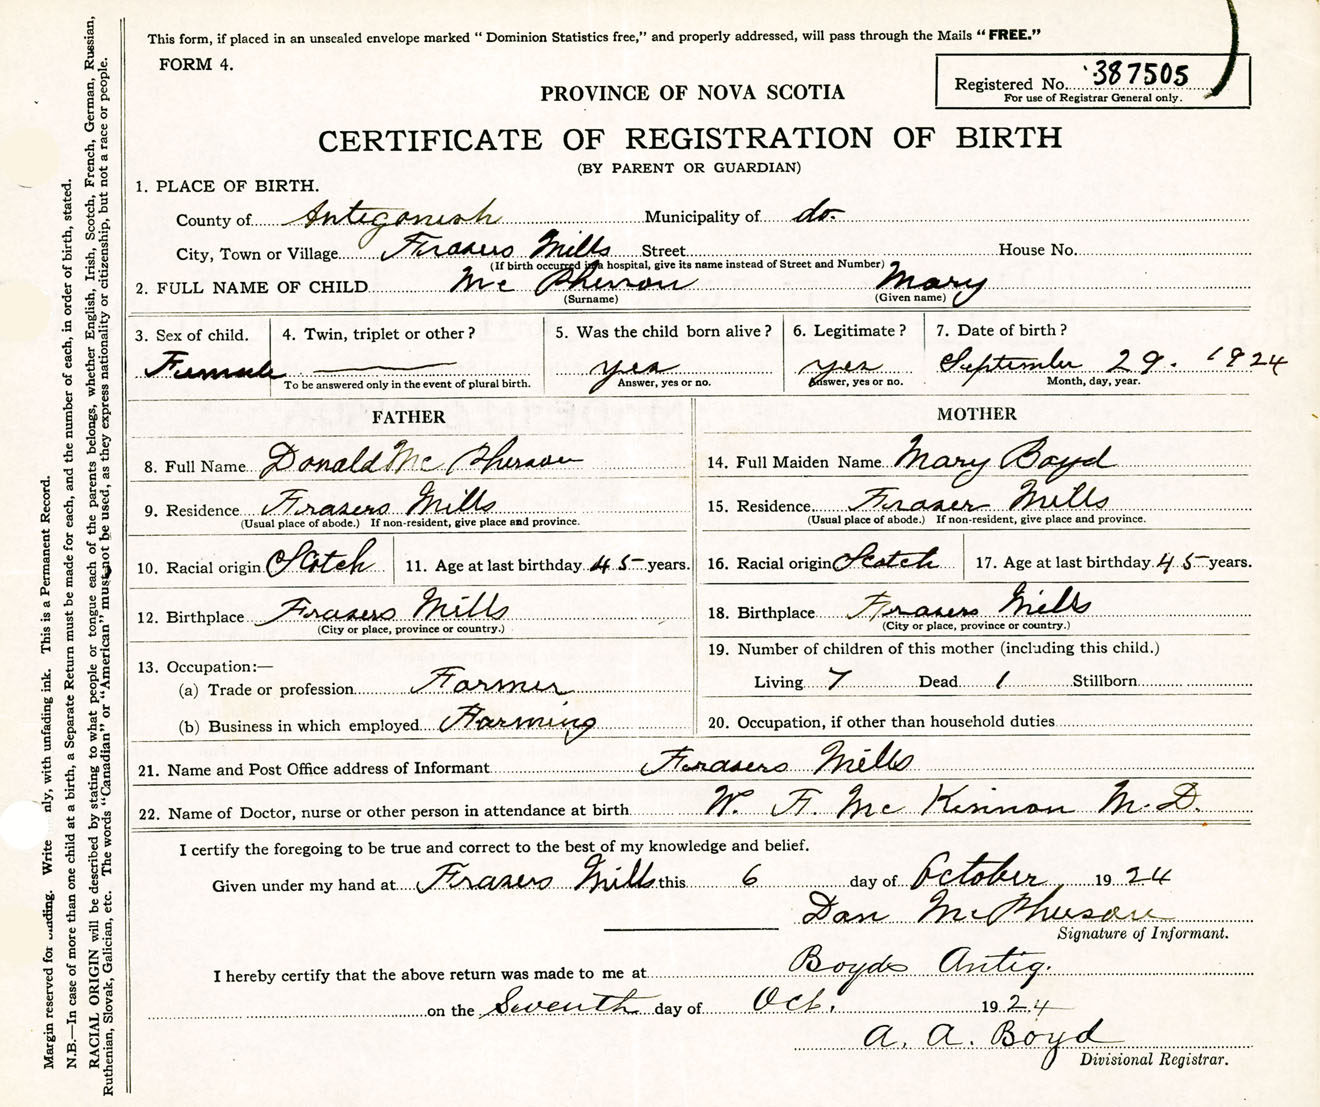 This form, if placed in an unsealed envelope marked " Dominion Statistics free," and properly addressed, will pass through the Mails "FREE."
FORM 4.
Registered No. 387505
For use of Registrar General only.
PROVINCE OF NOVA SCOTIA
CERTIFICATE OF REGISTRATION OF BIRTH
(BY PARENT OR GUARDIAN)
1. PLACE OF BIRTH.
County of Antigonish Municipality of do.
City, Town or Village Frasers Mills Street House No.
(If birth occurred in a hospital, give its name instead of Street and Number)
2. FULL NAME OF CHILD Mc Pherson Mary
(Surname) (Given name)
3. Sex of child. 4. Twin, triplet or other ? 5. Was the child born alive ? 6. Legitimate ? 7. Date of birth ?
Female — yes yes September 29. 1924
To be answered only in the event of plural birth. Answer, yes or no. Answer, yes or no. Month, day, year.
FATHER
8. Full Name Donald Mc Pherson
9. Residence Frasers Mills
(Usual place of abode.) If non-resident, give place and province.
10. Racial origin Scotch 11. Age at last birthday 45 years.
12. Birthplace Frasers Mills
(City or place, province or country.)
13. Occupation:—
(a) Trade or profession Farmer
(b) Business in which employed Farming
MOTHER
14. Full Maiden Name Mary Boyd
15. Residence Fraser Mills
(Usual place of abode.) If non-resident, give place and province.
16. Racial origin Scotch 17. Age at last birthday 45 years.
18. Birthplace Frasers Mills
(City or place, province or country.)
19. Number of children of this mother (including this child.)
Living 7 Dead 1 Stillborn
20. Occupation, if other than household duties
21. Name and Post Office address of Informant Frasers Mills
22. Name of Doctor, nurse or other person in attendance at birth W. F. Mc Kinnon M.D.
I certify the foregoing to be true and correct to the best of my knowledge and belief.
Given under my hand at Frasers Mills this 6 day of October 1924
Dan McPherson
Signature of Informant.
I hereby certify that the above return was made to me at Boyds Antig.
on the Seventh day of Oct. 1924
A. A. Boyd
Divisional Registrar.
Margin reserved for binding. Write nly, with unfading ink. This is a Permanent Record.
N.B.—In case of more than one child at a birth, a Separate Return must be made for each, and the number of each, in order of birth, stated.
RACIAL ORIGIN will be described by stating to what people or tongue each of the parents belongs, whether English, Irish, Scotch, French, German, Russian,
Ruthenian, Slovak, Galician, etc. The words "Canadian" or "American" must not be used, as they express nationality or citizenship, but not a race or people.